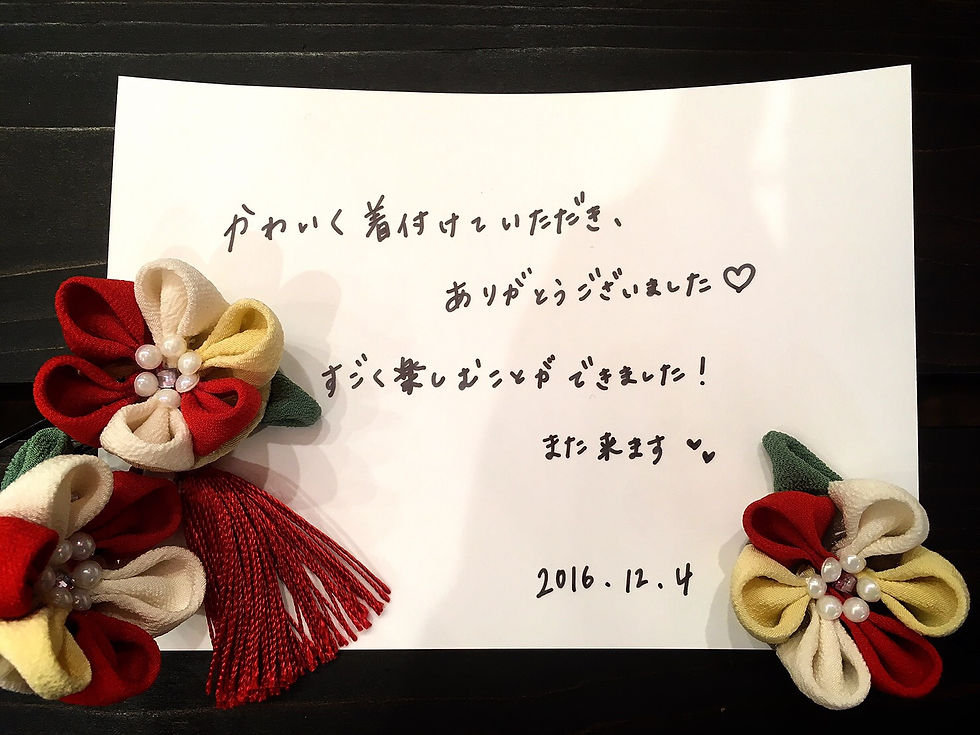 かわいく着付けていただき、
ありがとうございました♡
すごく楽しむことができました！
また来ます♥♥
2016.12.4